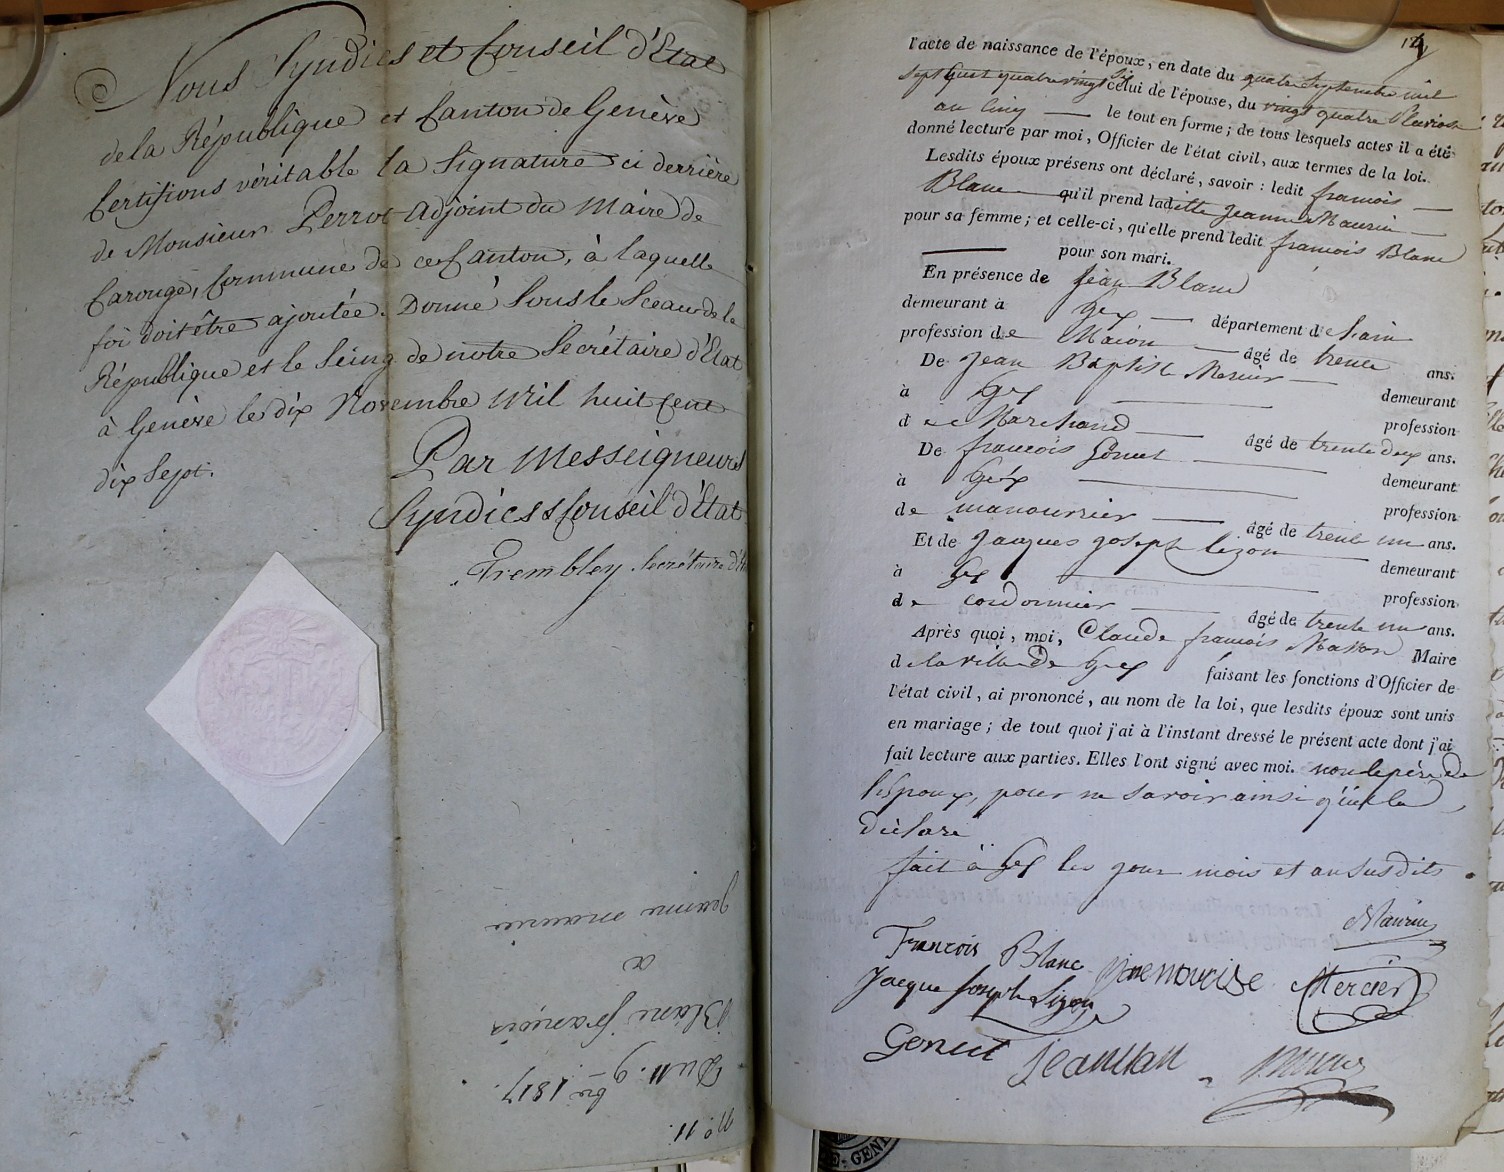 Nous Syndics et Conseil d'Etat
de la République et Canton de Genève
Certifions véritable la Signature ci derrière
de Monsieur Perrot Adjoint du Maire de
Carouge, Commune de ce Canton, à laquelle
foi doit être ajoutée. Donné Sous le Sceau de la
République et le Seing de notre Secrétaire d'Etat
à Genève le dix Novembre mil huit Cent
dix Sept.
Par Messeigneurs
Syndics & Conseil d'Etat
Trembley. Secrétaire d'
jeanne maurin
a
Blanc françois
Du 11. 9bre 1817.
N.° 11.
l'acte de naissance de l'époux, en date du quatre Septembre mil
Sept Cent quatre vingt Six celui de l'épouse, du vingt quatre Pluviose
an Cinq — le tout en forme; de tous lesquels actes il a été
donné lecture par moi, Officier de l'état civil, aux termes de la loi.
Lesdits époux présens ont déclaré, savoir: ledit françois —
Blanc — qu'il prend ladite Jeanne Maurin —
pour sa femme; et celle-ci, qu'elle prend ledit francois Blanc
— pour son mari.
En présence de Jean Blanc
demeurant à Gex — département de Lain
profession de Macon — âgé de trente ans.
De Jean Baptiste Mercier — demeurant
à Gex — profession
de Marchand — âgé de trente deux ans.
De françois Gonet — demeurant
à Gex — profession
de manouvrier — âgé de trente un ans.
Et de Jacques Joseph Lizon — demeurant
à Gex — profession
de cordonnier — âgé de trente un ans.
Après quoi, moi, Claude francois Masson Maire
de la ville de Gex faisant les fonctions d'Officier de
l'état civil, ai prononcé, au nom de la loi, que lesdits époux sont unis
en mariage; de tout quoi j'ai à l'instant dressé le présent acte dont j'ai
fait lecture aux parties. Elles l'ont signé avec moi. non le père de
l'Epoux, pour ne savoir ainsi qu'il le
déclare
fait à Gex les jour mois et an susdits
Maurin
Francois Blanc Mercier
Jacque Joseph Lizon
Gonet